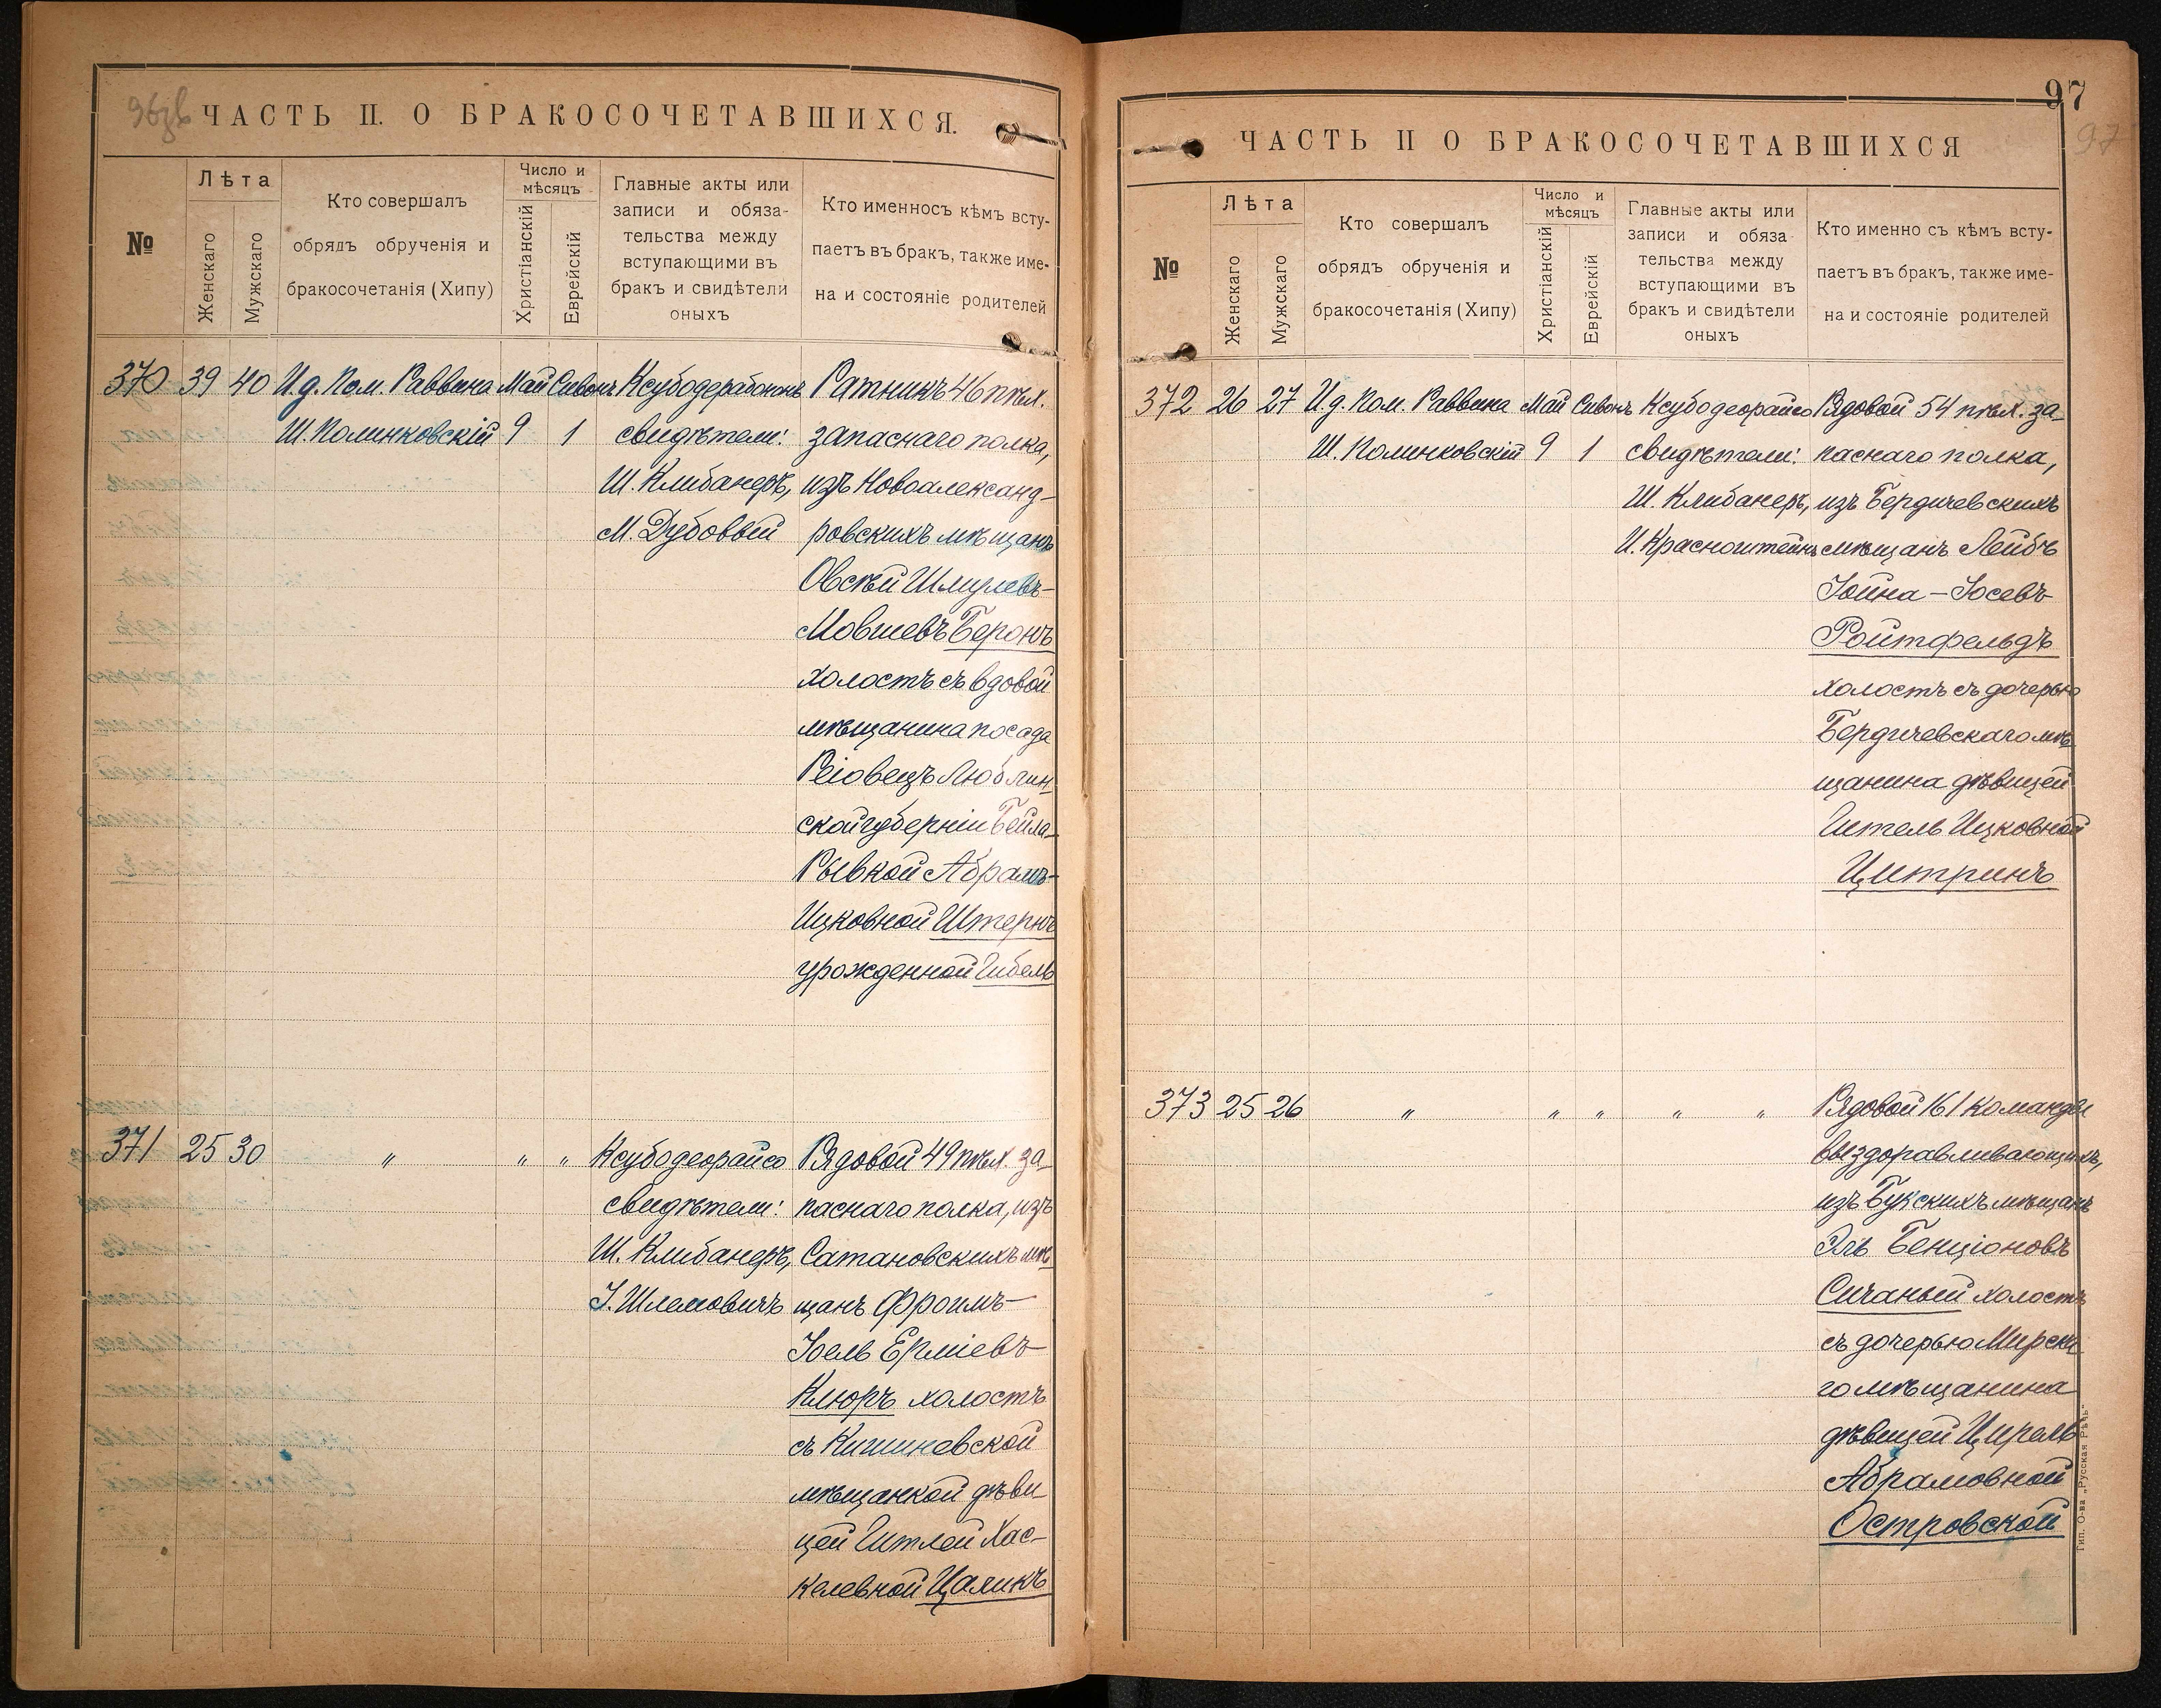 ЧАСТЬ II. О БРАКОСОЧЕТАВШИХСЯ.
№
Лѣта
Женскаго
Мужскаго
Кто совершалъ
обрядъ обрученія и
бракосочетанія (Хипу)
Число и
мѣсяцъ
Христіанскій
Еврейскій
Главные акты или
записи и обяза-
тельства между
вступающими въ
бракъ и свидѣтели
оныхъ
Кто именносъ кѣмъ всту-
паетъ въ бракъ, также име-
на и состояніе родителей
370 39 40
И.д. Пом. Раввина
Ш. Полинковскій
Май
9
Сивонъ
1
свидѣтели:
Ш. Клибанеръ,
М. Дубовый
Ратникъ 46 пѣх.
запаснаго полка,
изъ Новоалександ-
ровскихъ мѣщанъ
Овсѣй Шмулевъ-
Мовшевъ Беронъ
холостъ съ вдовой
мѣщанина посада
Реіовецъ Люблин-
ской губерніи Бейла-
Рывкой Абрамъ-
Ицковной Штернъ
урожденной Гибель
371 25 30
" " "
Ксубодеорайсо
свидѣтели:
Ш. Клибанеръ,
І. Шлемовичъ
Рядовой 49 пѣх. за-
паснаго полка, изъ
Сатановскихъ мѣ-
щанъ Фроимъ-
Іоель Ерміевъ
Клюръ холостъ
съ Кишиневской
мѣщанкой дѣви-
цей Гитлей Хас-
келевной Цаликъ
97
97
ЧАСТЬ II О БРАКОСОЧЕТАВШИХСЯ
№
Лѣта
Женскаго
Мужскаго
Кто совершалъ
обрядъ обрученія и
бракосочетанія (Хипу)
Число и
мѣсяцъ
Христіанскій
Еврейскій
Главные акты или
записи и обяза
тельства между
вступающими въ
бракъ и свидѣтели
оныхъ
Кто именно съ кѣмъ всту-
паетъ въ бракъ, также име-
на и состояніе родителей
372 26 27
И.д. Пом. Раввина
Ш. Полинковскій
Май
9
Сивонъ
1
Ксубодеорайсо
свидѣтели:
Ш. Клибанеръ,
И. Красноштейнъ
Рядовой 54 пѣх. за-
паснаго полка,
изъ Бердичевскихъ
мѣщанъ Лейбъ
Іойна-Іосевъ
Ройтфельдъ
холостъ съ дочерью
Бердичевскаго мѣ-
щанина дѣвицей
Гитель Ицковной
Цитринъ
373 25 26
" " " " "
Рядовой 161 команды
выздоравливающихъ,
изъ Букскихъ мѣщанъ
Эль Бенціоновъ
Сичаный холостъ
съ дочерью Мирска-
го мѣщанина
дѣвицей Цирель
Абрамовной
Островской
Тип. О-ва „Русская Рѣчь“